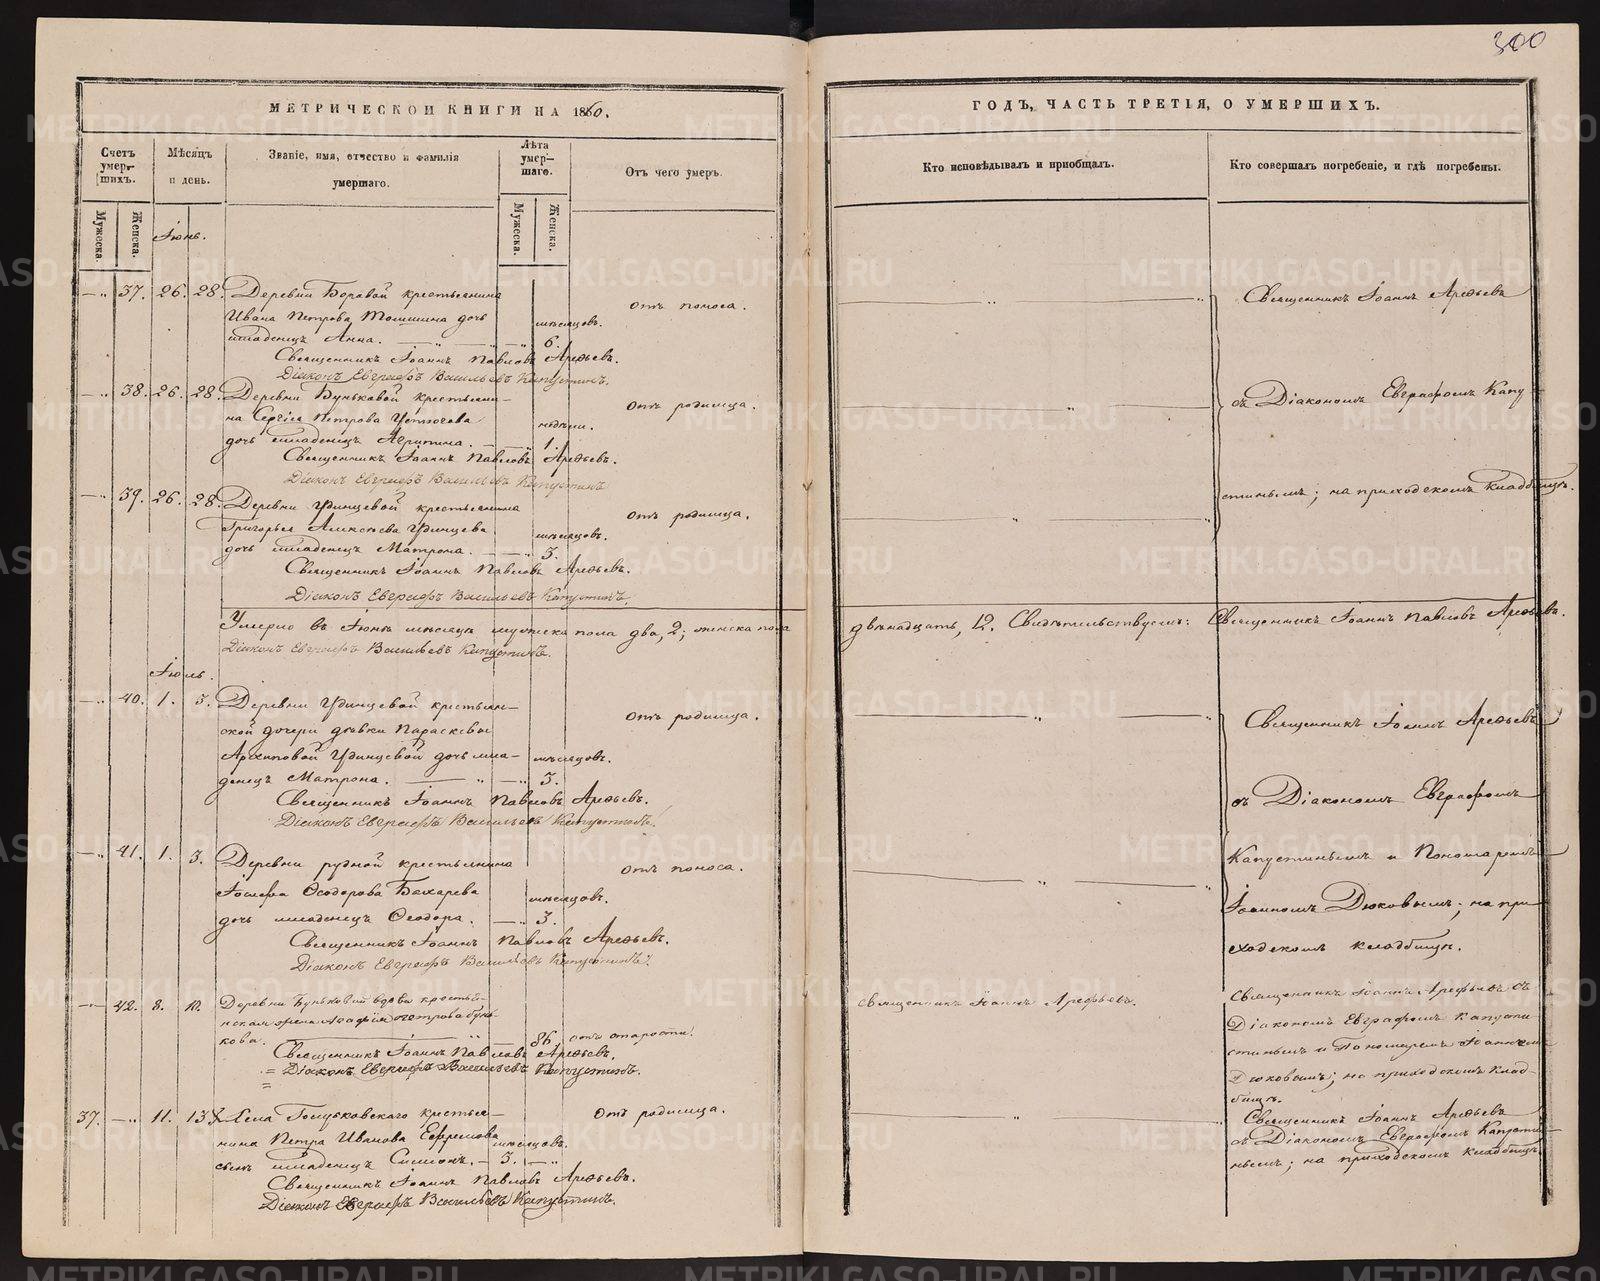 300
МЕТРИЧЕСКОЙ КНИГИ НА 1860.
Счетъ умер-шихъ.
Мѣсяцъ и день.
Званіе, имя, отчество и фамилія умершаго.
Лѣта умер-шаго.
Отъ чего умеръ.
Мужеска.
Женска.
Мужеска.
Женска.
Іюнь.
37. 26. 28. Деревни Боровой крестьянина
Ивана Петрова Томшина дочь
младенецъ Анна.
мѣсяцовъ.
6.
отъ поноса.
Священникъ Іоаннъ Павловъ Арефьевъ.
Діаконъ Евграфъ Васильевъ Капустинъ.
38. 26. 28. Деревни Буньковой крестьяни-
на Сергія Петрова
дочь младенецъ Агрипина.
недѣли.
1.
отъ родимца.
Священникъ Іоаннъ Павловъ Арефьевъ.
Діаконъ Евграфъ Васильевъ Капустинъ.
39. 26. 28. Деревни Удинцевой крестьянина
Григорья Алексѣева Удинцева
дочь младенецъ Матрона.
мѣсяцовъ.
3.
отъ родимца.
Священникъ Іоаннъ Павловъ Арефьевъ.
Діаконъ Евграфъ Васильевъ Капустинъ.
Умерло въ Іюнѣ мѣсяцѣ мужеска пола два, 2; женска пола
Діаконъ Евграфъ Васильевъ Капустинъ.
Іюль.
40. 1. 3. Деревни Удинцевой крестьян-
ской дочери дѣвки Параскевы
Архиповой Удинцевой дочь мла-
денецъ Матрона.
мѣсяцовъ.
3.
отъ родимца.
Священникъ Іоаннъ Павловъ Арефьевъ.
Діаконъ Евграфъ Васильевъ Капустинъ.
41. 1. 3. Деревни рудной крестьянина
Іосифа Ѳеодорова Бахарева
дочь младенецъ Ѳеодора.
мѣсяцовъ.
3.
отъ поноса.
Священникъ Іоаннъ Павловъ Арефьевъ.
Діаконъ Евграфъ Васильевъ Капустинъ.
42. 8. 10. Деревни Буньковой вдова крестья-
нская жена Агафія Петрова Бунь-
кова.
86. отъ старости.
Священникъ Іоаннъ Павловъ Арефьевъ.
= Діаконъ Евграфъ Васильевъ Капустинъ.
37. 11. 13. Села Голубковскаго крестья-
нина Петра Иванова Ефремова
сынъ младенецъ Симеонъ.
мѣсяцовъ.
3.
отъ родимца.
Священникъ Іоаннъ Павловъ Арефьевъ.
Діаконъ Евграфъ Васильевъ Капустинъ.
ГОДЪ, ЧАСТЬ ТРЕТІЯ, О УМЕРШИХЪ.
Кто исповѣдывалъ и пріобщалъ.
Кто совершалъ погребеніе, и гдѣ погребены.
Священникъ Іоаннъ Арефьевъ
съ Діакономъ Евграфомъ Капу-
стинымъ; на приходскомъ кладбищѣ.
двѣнадцать, 12. Свидѣтельствуемъ: Священникъ Іоаннъ Павловъ Арефьевъ.
Священникъ Іоаннъ Арефьевъ
съ Діакономъ Евграфомъ
Капустинымъ и Пономаремъ
Іоанномъ Дюковымъ; на при-
ходскомъ кладбищѣ.
Священникъ Іоаннъ Арефьевъ.
Священникъ Іоаннъ Арефьевъ съ
Діакономъ Евграфомъ Капу-
стинымъ и Пономаремъ Іоанномъ
Дюковымъ; на приходскомъ клад-
бищѣ.
Священникъ Іоаннъ Арефьевъ
съ Діакономъ Евграфомъ Капусти-
нымъ; на приходскомъ кладбищѣ.
METRIKI.GASO-URAL.RU